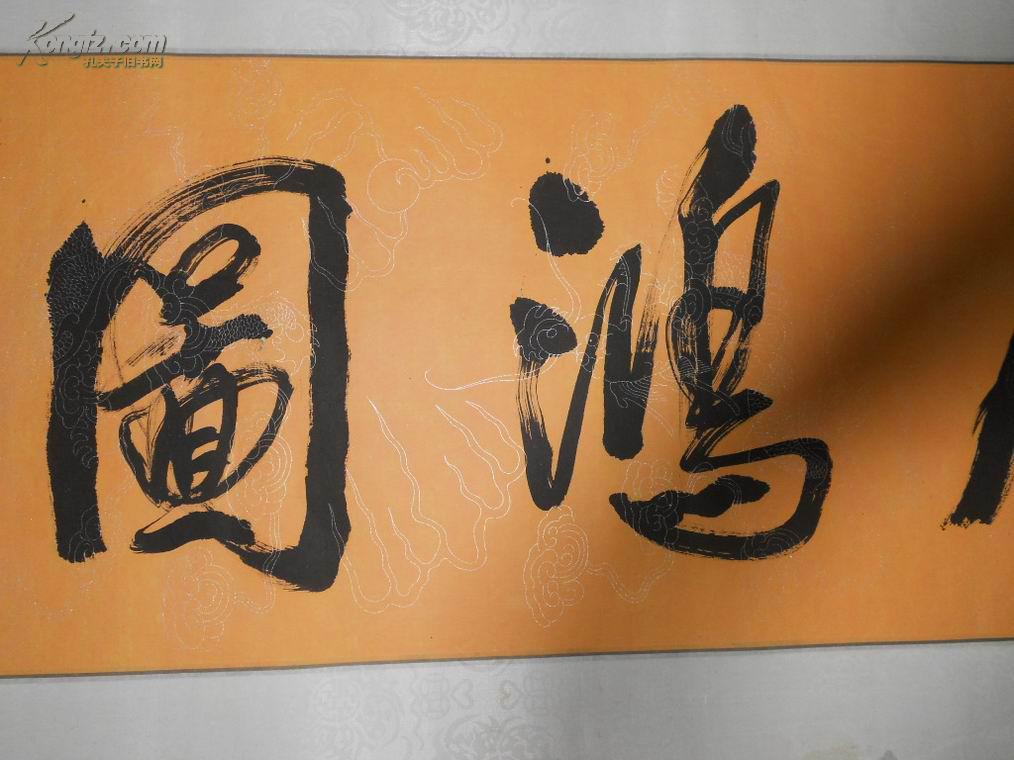 鴻圖
Kongfz.com
孔夫子旧书网